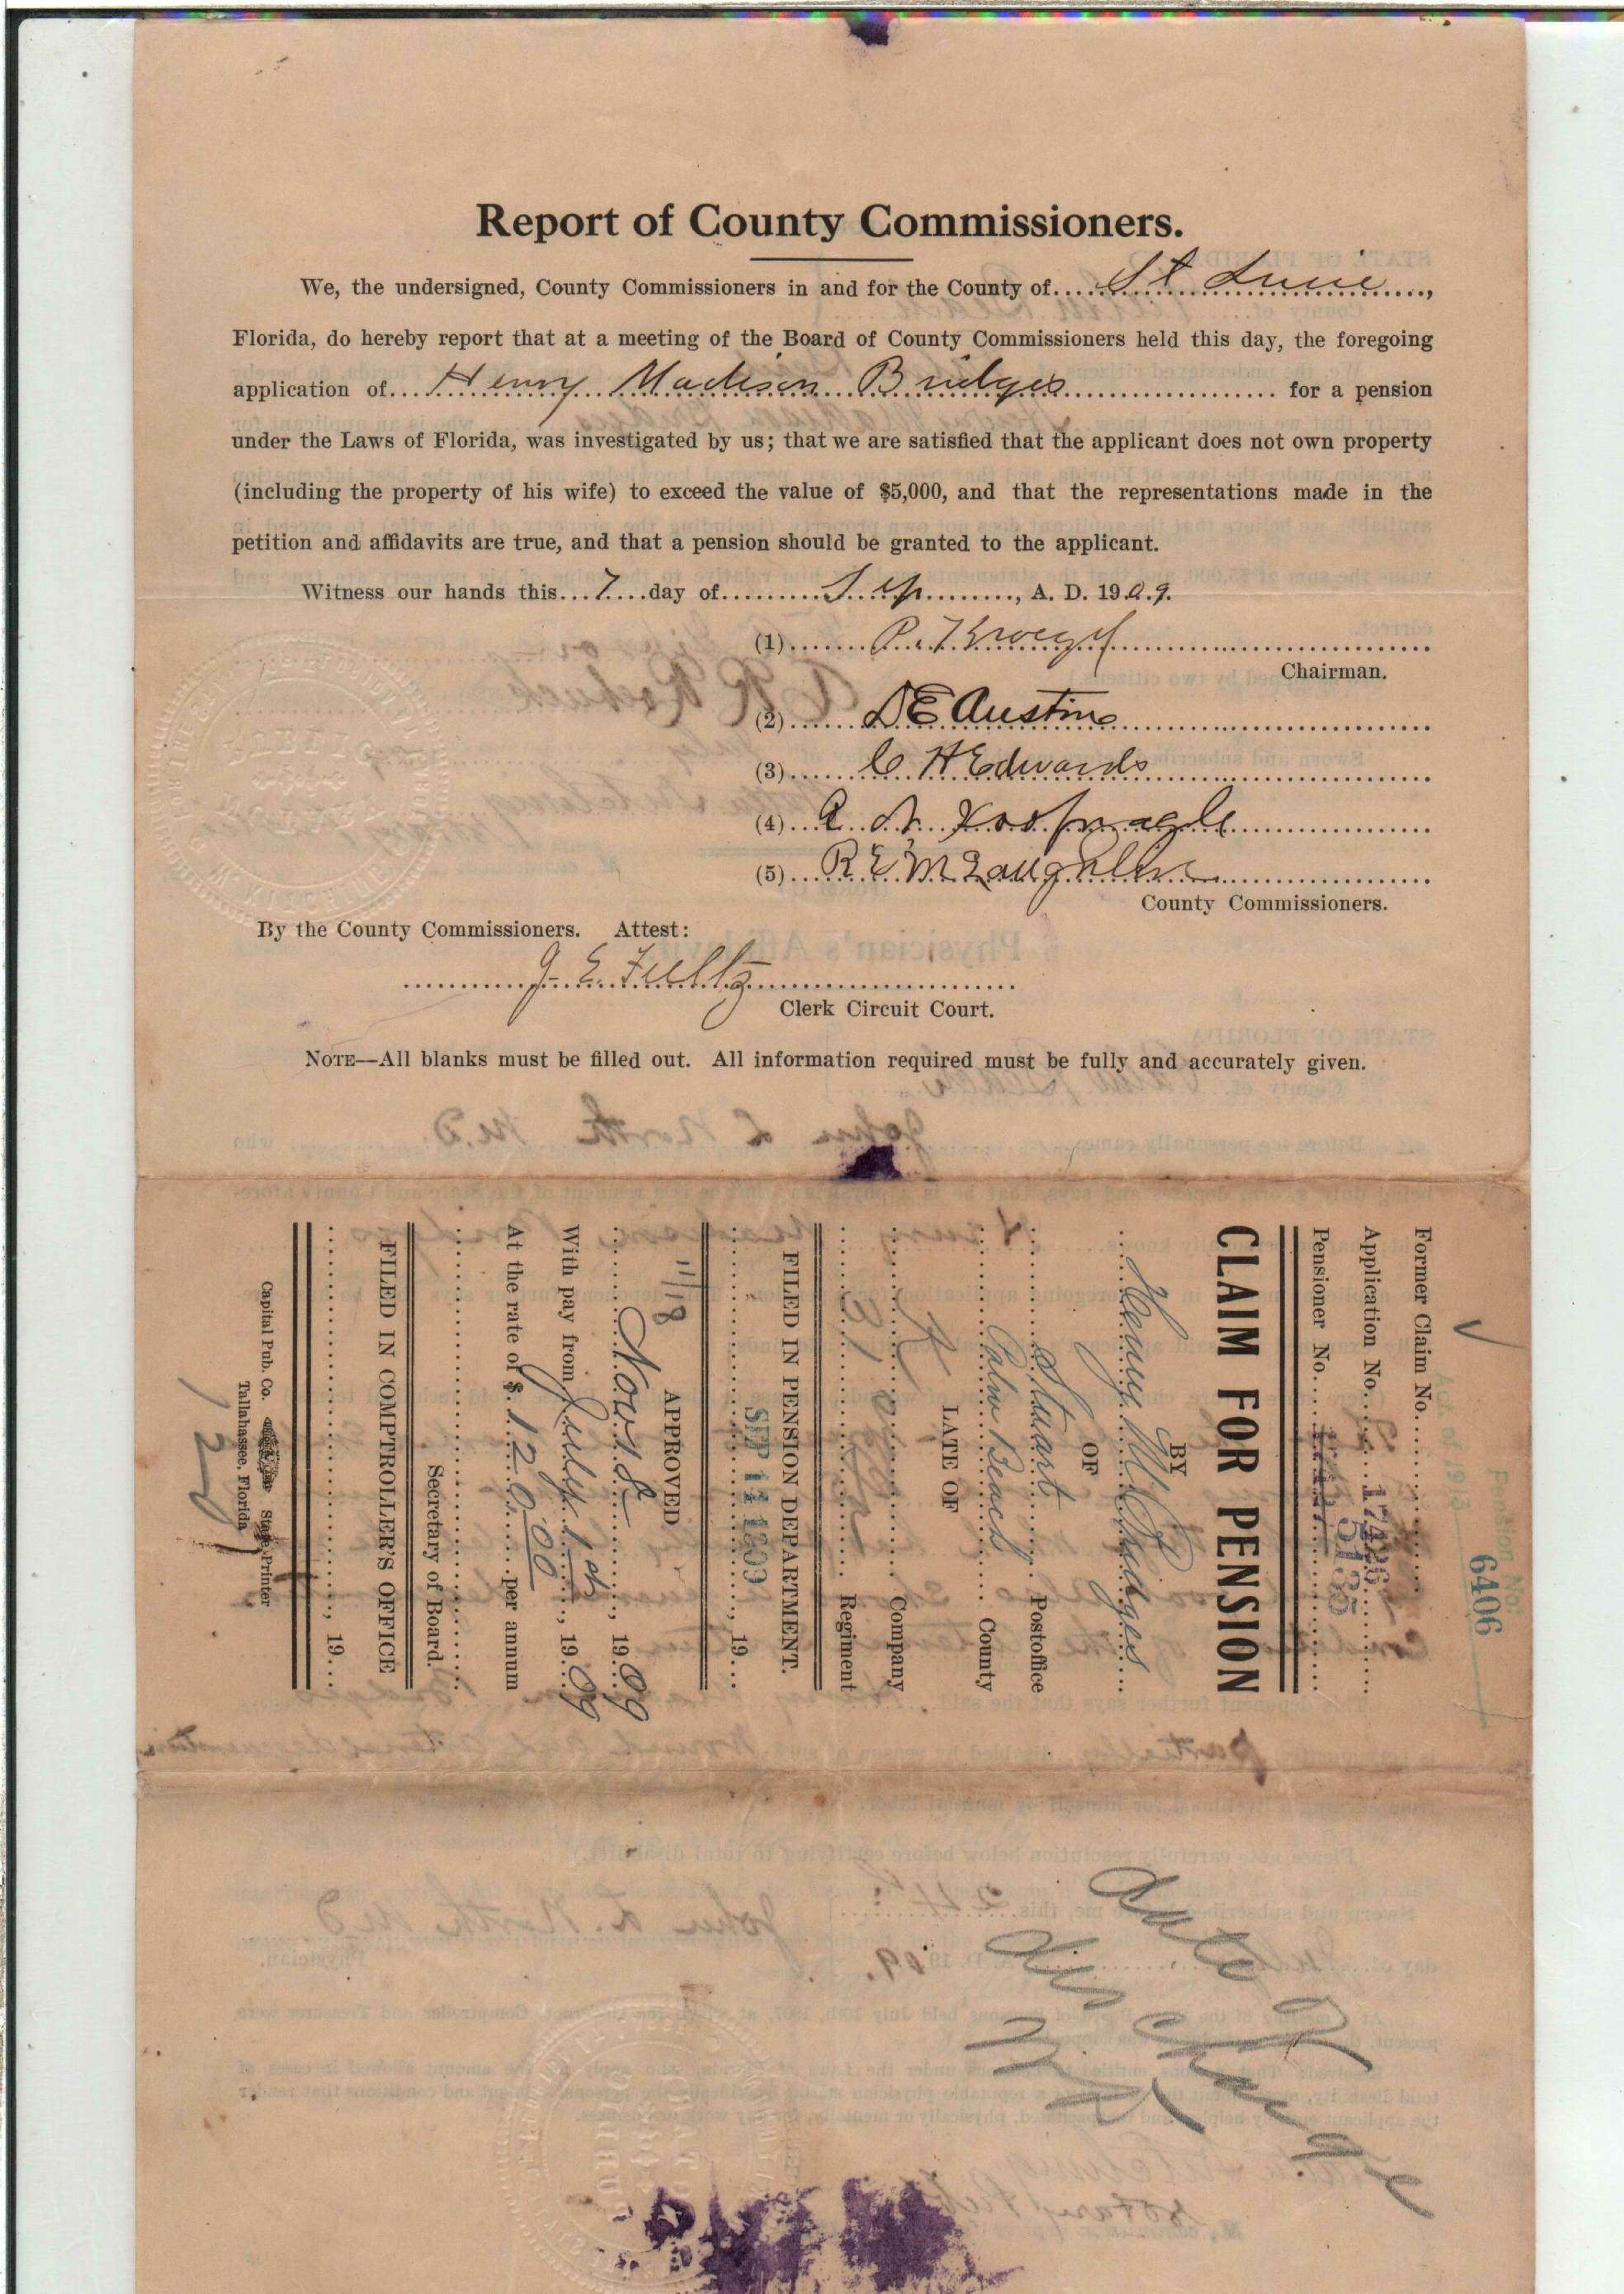 Report of County Commissioners.
We, the undersigned, County Commissioners in and for the County of....St Lucie....,
Florida, do hereby report that at a meeting of the Board of County Commissioners held this day, the foregoing
application of....Henry Madison Bridges.... for a pension
under the Laws of Florida, was investigated by us; that we are satisfied that the applicant does not own property
(including the property of his wife) to exceed the value of $5,000, and that the representations made in the
petition and affidavits are true, and that a pension should be granted to the applicant.
Witness our hands this...7....day of........Sep........, A. D. 1909.
(1)......P. Kroegel
Chairman.
(2)......D E Austin
(3)......C. H Edwards
(4)...A. Koopnagle
(5)...R. E. McLaughlin
County Commissioners.
By the County Commissioners. Attest:
J. E. Fultz
Clerk Circuit Court.
NOTE—All blanks must be filled out. All information required must be fully and accurately given.
Pension No:
6406
Act of 1913
Former Claim No.
Application No. 17426
Pensioner No. 5135
CLAIM FOR PENSION
BY
Henry M Bridges
OF
Stuart Postoffice
Palm Beach County
LATE OF
Company
Regiment
FILED IN PENSION DEPARTMENT.
SEP 11 1909, 19
APPROVED
11/18
Nov 18, 1909
With pay from July 1st, 1909
At the rate of $120.00 per annum
Secretary of Board.
FILED IN COMPTROLLER'S OFFICE
, 19
Capital Pub. Co. State Printer
Tallahassee, Florida
120
date of
discharge